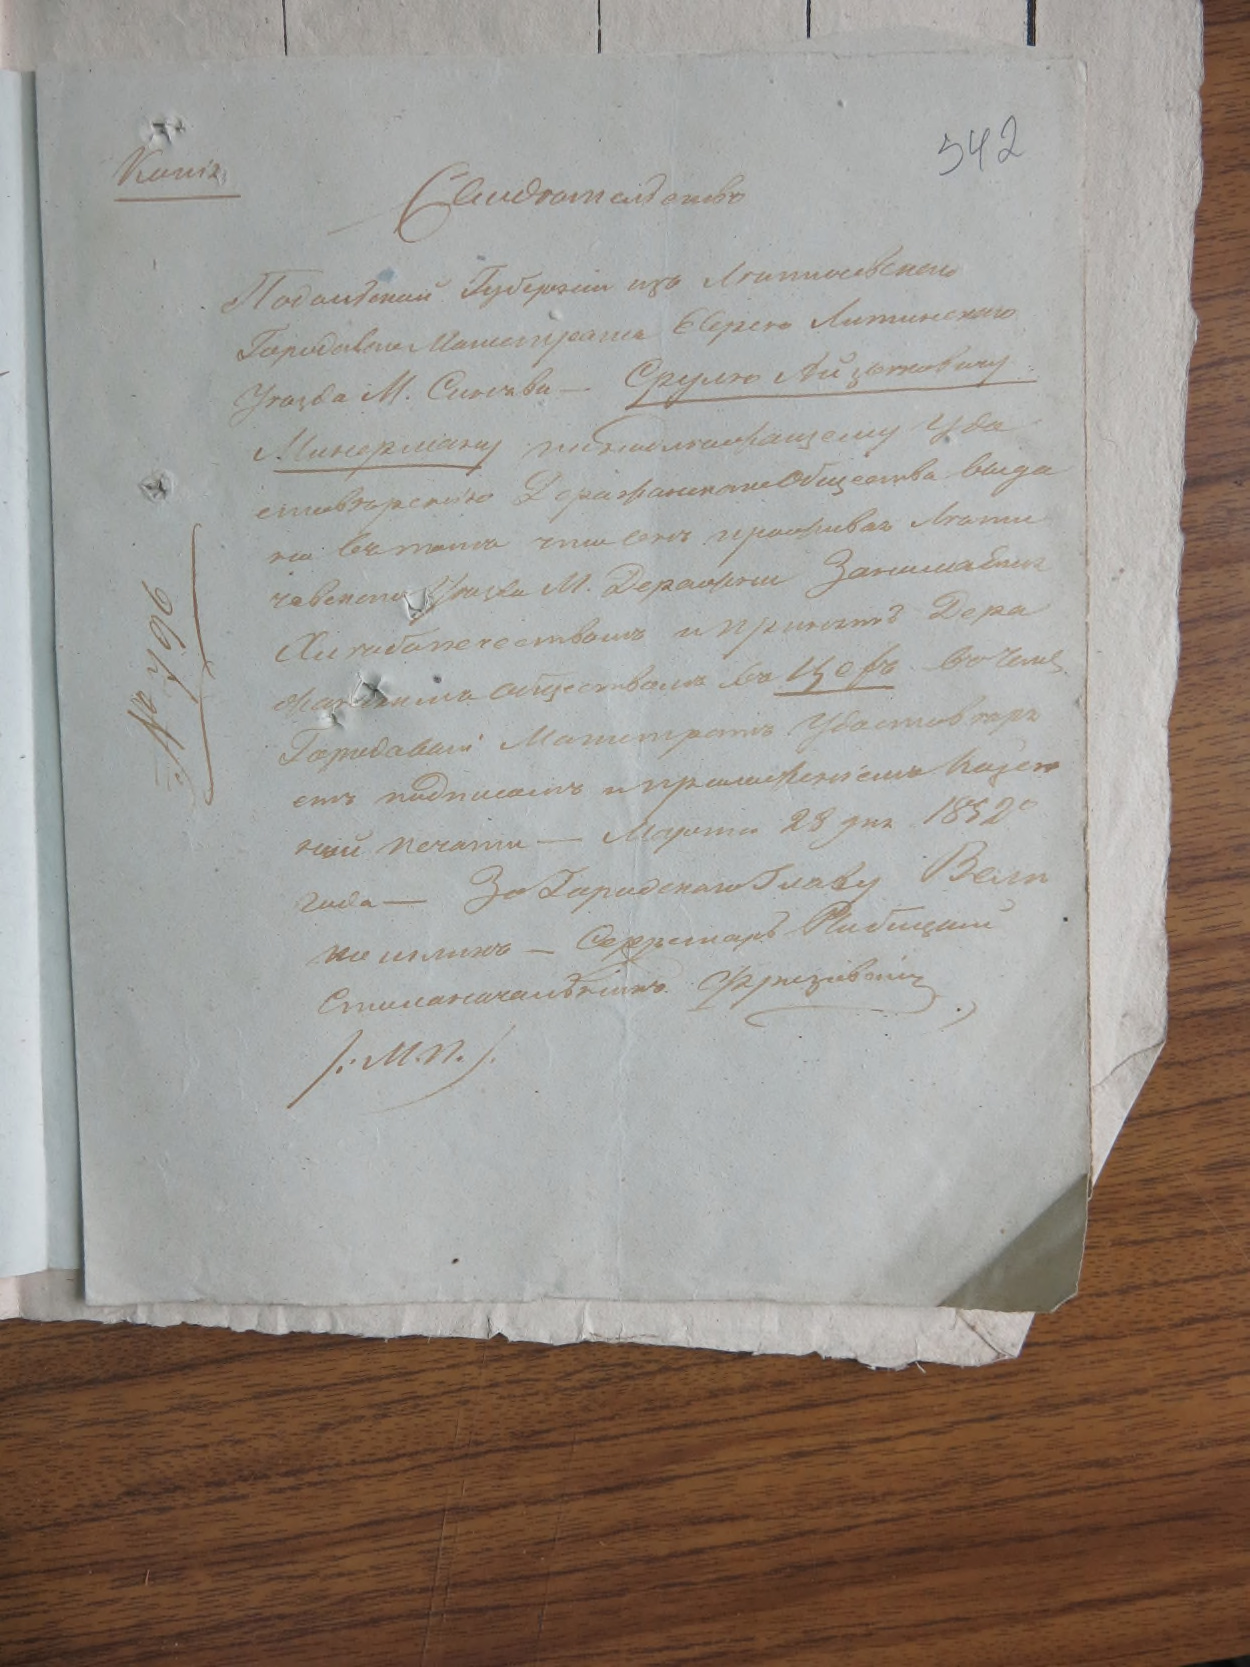 542
Копія
Свидѣтельство
Подольской Губерніи изъ Летичевскаго
Городоваго Магистрата Еврею Литинскаго
Уѣзда М. Синявы — Срулю Айзиковичу
Минерману по надлежащему Удо
стовѣренію Деражнянскаго Общества выда
но въ томъ что онъ проживая Лети
чевскаго Уѣзда М. Деражни Занимаетъ
Хлебопашествомъ и принятъ Дера
Обществомъ въ въ чемъ
Городовый Магистратъ Удостовѣря
етъ подписомъ и приложеніемъ Казен
ной печати — Марта 28 дня 1852°
года — За Городскаго Главу
— Секретарь
Столоначальникъ
/: М. П. :/
№ 796